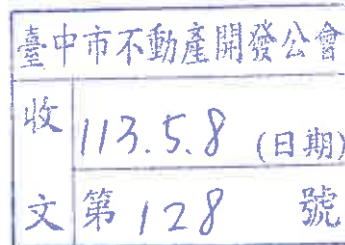 臺中市不動產開發公會
收文
113.5.8 (日期)
第128號